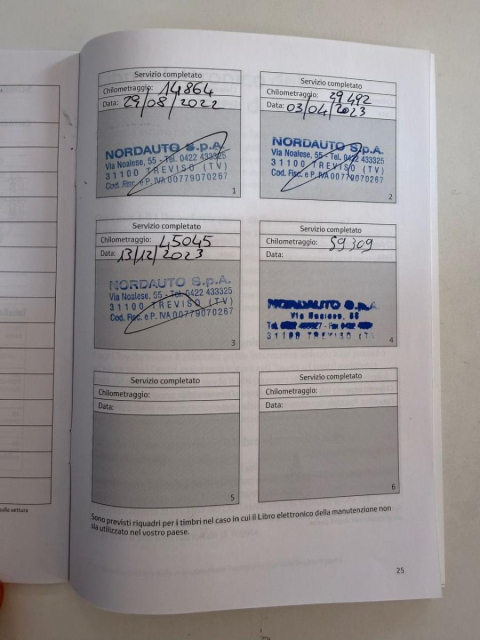 Servizio completato
Chilometraggio: 14864
Data: 29/08/2022
NORDAUTO S.p.A.
Via Noalese, 55 - Tel. 0422 433325
31100 TREVISO (TV)
Cod. Fisc. e P. IVA 00779070267
1
Servizio completato
Chilometraggio: 29492
Data: 03/04/2023
NORDAUTO S.p.A.
Via Noalese, 55 - Tel. 0422 433325
31100 TREVISO (TV)
Cod. Fisc. e P. IVA 00779070267
2
Servizio completato
Chilometraggio: 45045
Data: 13/12/2023
NORDAUTO S.p.A.
Via Noalese, 55 - Tel. 0422 433325
31100 TREVISO (TV)
Cod. Fisc. e P. IVA 00779070267
3
Servizio completato
Chilometraggio: 59309
Data:
NORDAUTO S.p.A.
Via Noalese, 55
31100 TREVISO (TV)
4
Servizio completato
Chilometraggio:
Data:
5
Servizio completato
Chilometraggio:
Data:
6
Sono previsti riquadri per i timbri nel caso in cui il Libro elettronico della manutenzione non
sia utilizzato nel vostro paese.
25